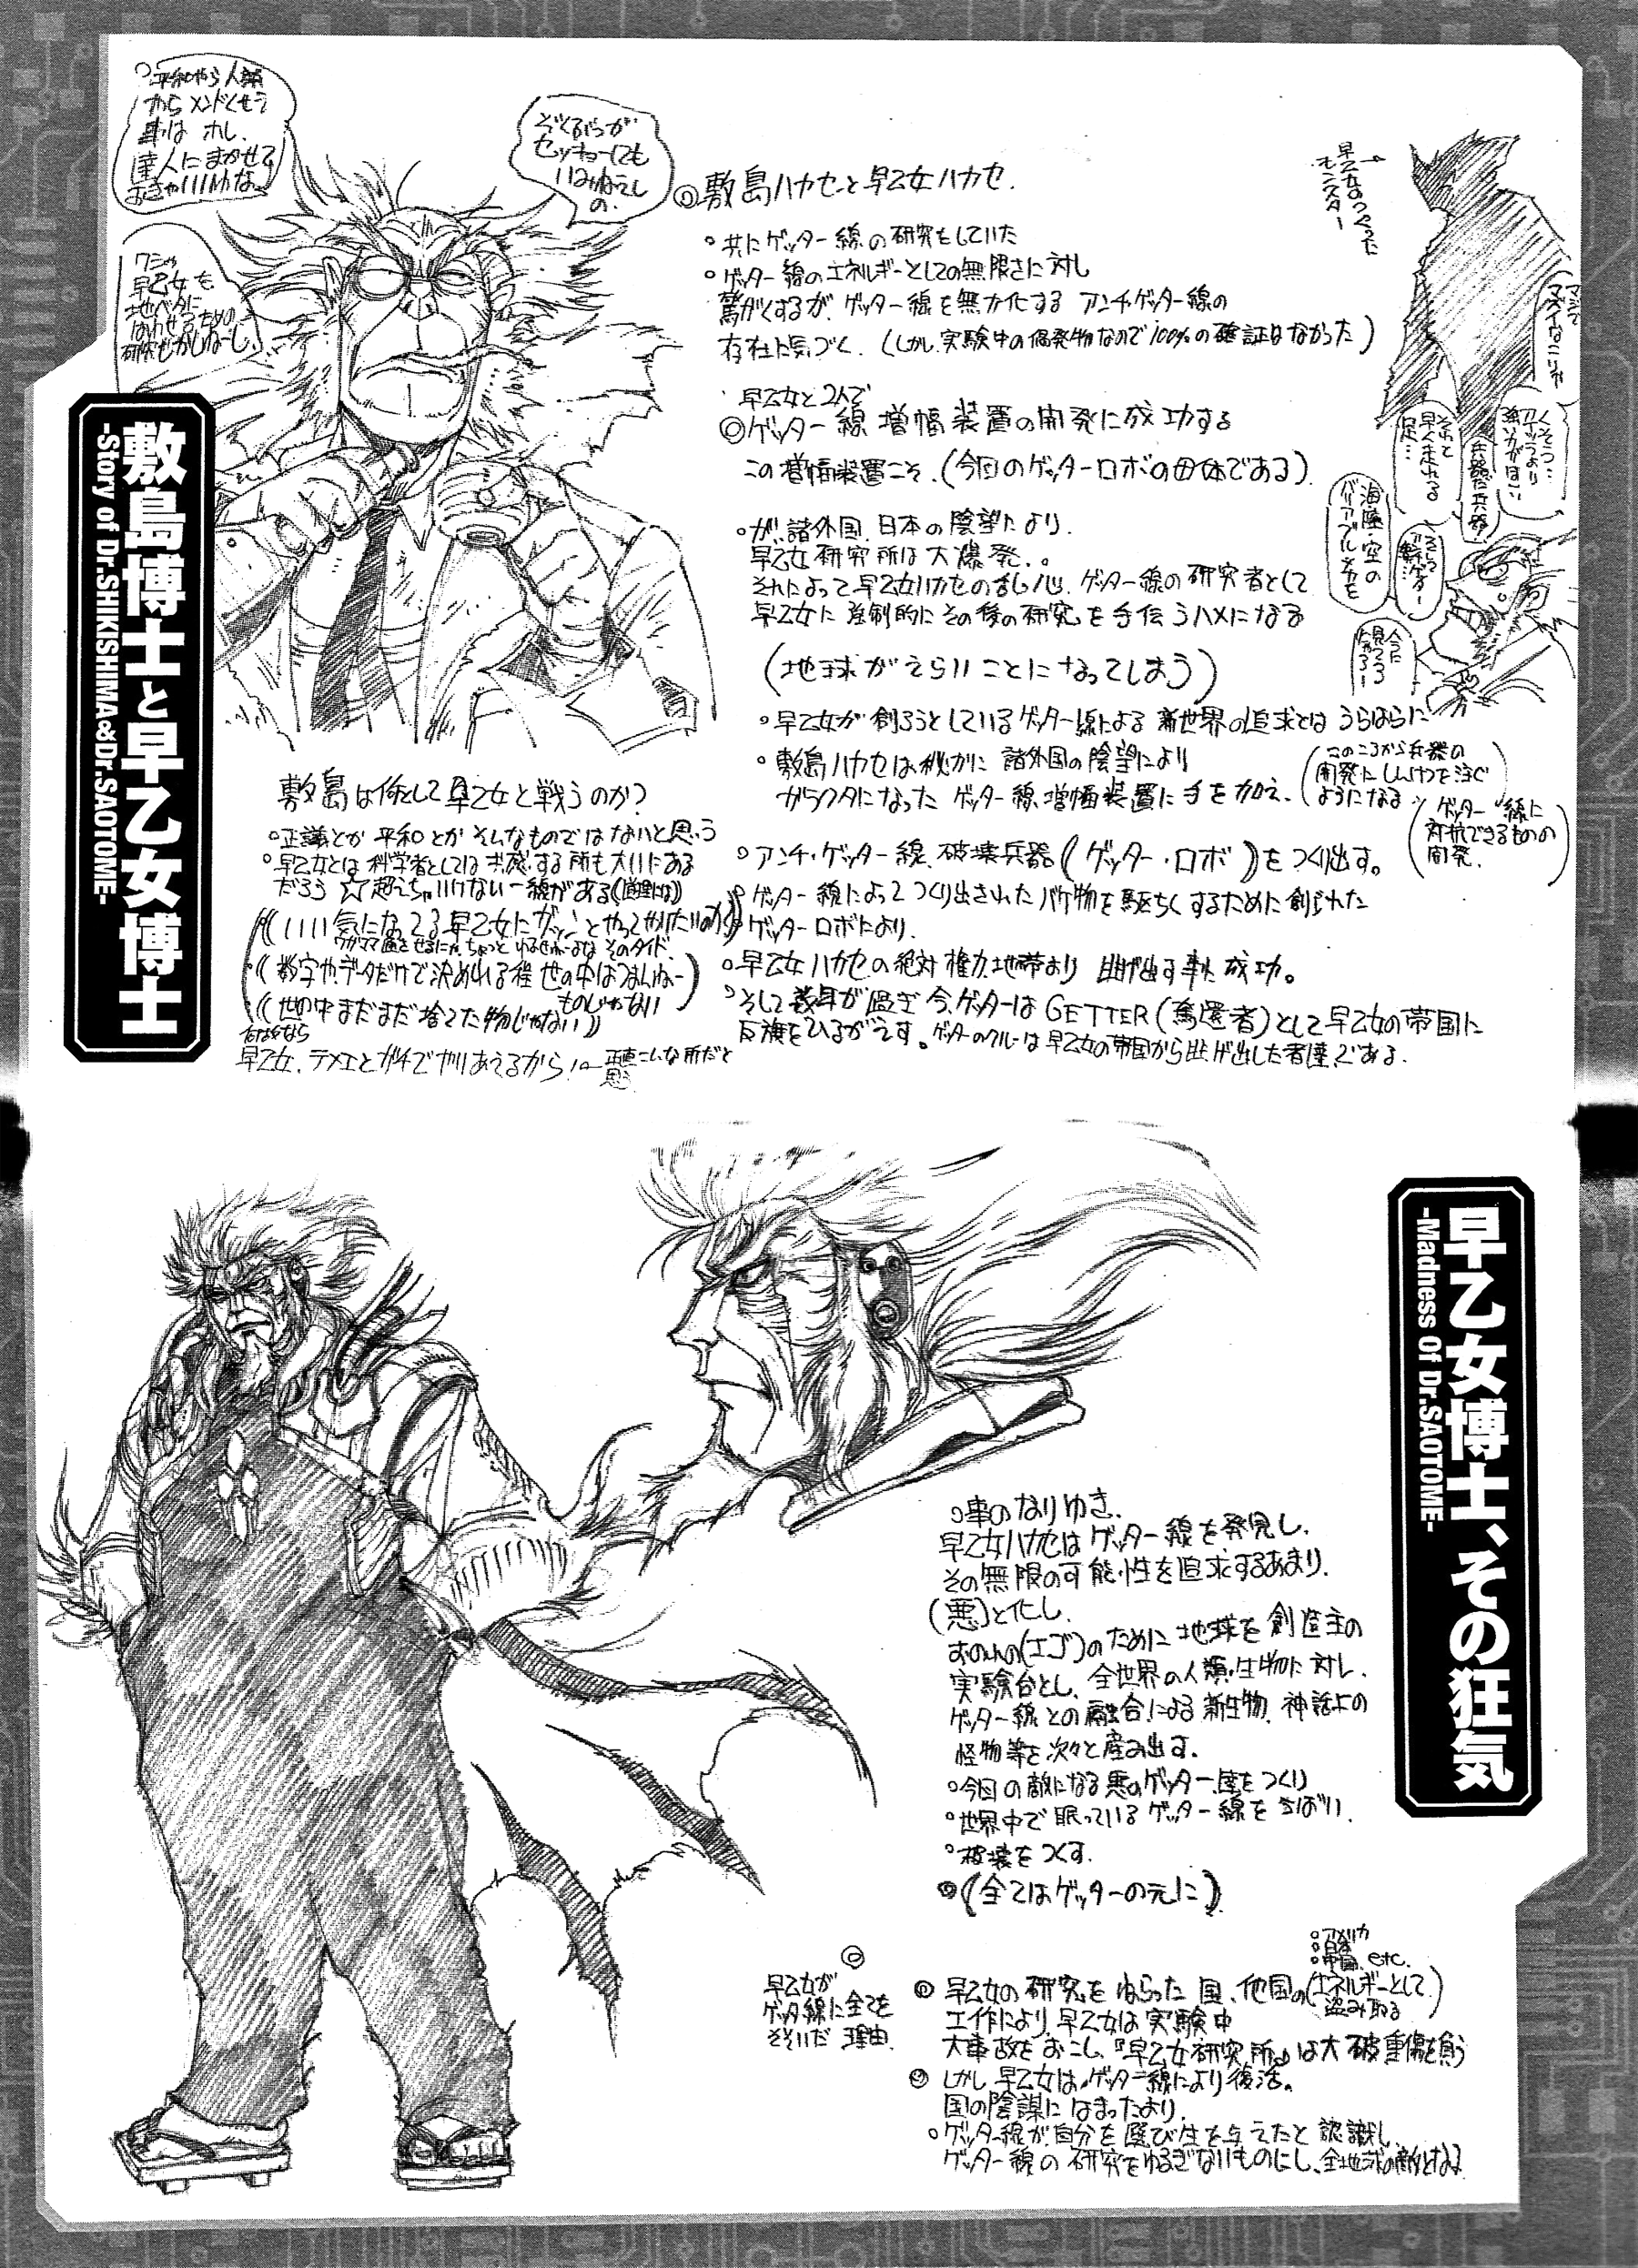 敷島博士と早乙女博士
-Story of Dr.SHIKISHIMA&Dr.SAOTOME-
平和やら人類
からメンドくせう
事は ホレ、
達人にまかせて
おきゃいいわな
ぞくぶつが
セッキョーにも
いみねえし
の.
ワシゃ
早乙女も
地ベタに
はわせるための
研究しかしねーし.
◎敷島ハカセと早乙女ハカセ.
○共にゲッター線の研究をしていた
○ゲッター線のエネルギーとしての無限さに対し
驚がくするが、ゲッター線を無力化する アンチ・ゲッター線の
存在に気づく. (しかし、実験中の偶発物なので100%の確証はなかった)
早乙女と2人で
◎ゲッター線増幅装置の開発に成功する
この増幅装置こそ.(今回のゲッターロボの母体である)
○が、諸外国、日本の陰望により.
早乙女研究所は大爆発.。
それによって早乙女ハカセの乱心、ゲッター線の研究者として
早乙女に強制的にその後の研究を手伝うハメになる
(地球がえらいことになってしまう)
○早乙女が創ろうとしているゲッター線による新世界の追求とはうらはらに
○敷島ハカセは、秘かに諸外国の陰望により
がらクタになったゲッター線増幅装置に手を加え、
(このころから兵器の
開発にしんけつを注ぐ
ようになる)
(ゲッター線に
対抗できるものの
開発.)
○アンチ・ゲッター線、破壊兵器(ゲッター・ロボ)をつくり出す。
○ゲッター線によってつくり出されたバケ物を駆ちくするために創られた
○ゲッターロボにより.
○早乙女ハカセの絶対権力地帯より 逃げ出す事に成功。
○そして数年が過ぎ今、ゲッターはGETTER(奪還者)として早乙女の帝国に
反旗をひるがえす。ゲッターのクルーは早乙女の帝国から逃げ出した者達である.
早乙女のつくった
モンスター
マジで
マズイなこりゃ
それと
早く走れる
足…
兵器だ兵器
海・陸・空の
バリアブルメカを
敷島は何として早乙女と戦うのか?
○正義とか平和とかそんなものではないと思う
○早乙女とは科学者としては共感する所も大いにある
だろう ☆超えちゃいけない一線がある
((いい気になってる早乙女にガツンとやってやりたいのか))
((数字やデータだけで決められる程世の中はつまんねー
ものじゃない
((世の中まだまだ捨てた物じゃない))
なぜなら
早乙女、テメエとガチでやりあえるから!
正直こんな所だと
思う
早乙女博士、その狂気
-Madness Of Dr.SAOTOME-
○事のなりゆき.
早乙女ハカセはゲッター線を発見し、
その無限の可能性を追求するあまり.
(悪)と化し.
おのれの(エゴ)のために地球を創造主の
実験台とし、全世界の人類・生物に対し、
ゲッター線との融合による新生物、神話上の
怪物等を次々と産み出す.
○今回の敵になる悪のゲッター、軍をつくり
○世界中で眠っているゲッター線をうばい.
○破壊をつくす.
◎(全てはゲッターの元に)
◎
早乙女が
ゲッタ線に全てを
そそいだ理由.
○アメリカ
○日本
○中国、etc.
① 早乙女の研究をねらった国、他国の(エネルギーとして
盗み取る)
工作により、早乙女は実験中
大事故をおこし、『早乙女研究所』は大破重傷を負う
② しかし早乙女は、ゲッター線により復活。
国の陰謀にはまったより.
○ゲッター線が自分を選び生を与えたと認識し
ゲッター線の研究をゆるぎないものにし、全地球の敵となる